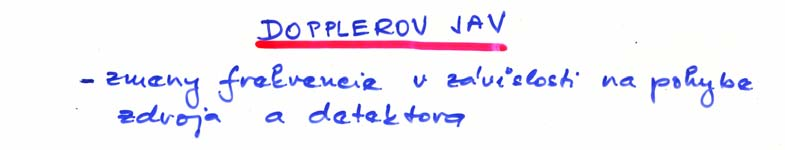 DOPPLEROV JAV
- zmeny frekvencie v závislosti na pohybe
zdroja a detektora